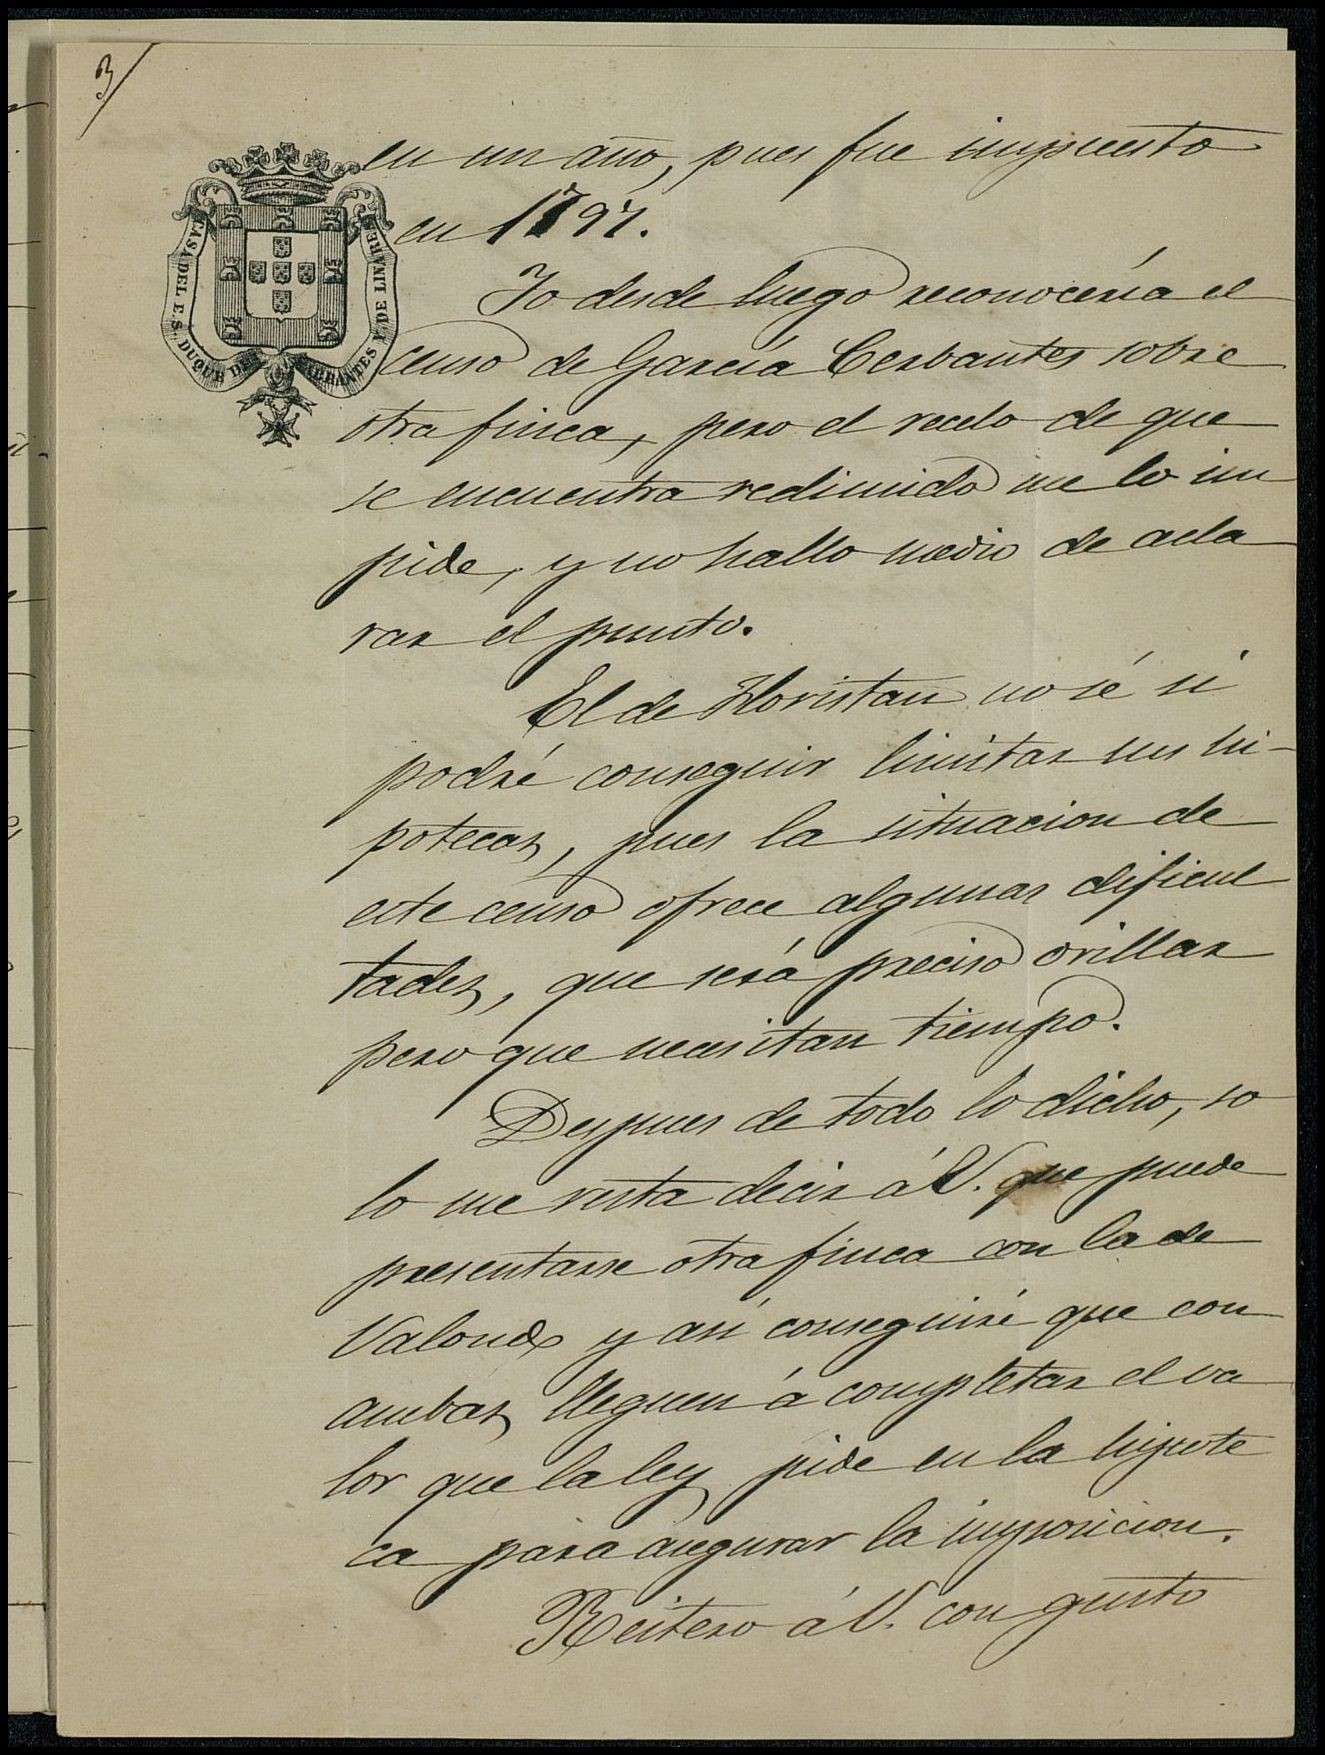 3
CASA DEL E.S. DUQUE DE ABRANTES Y DE LINARES
en un año, pues fue impuesto
en 1797.
Yo desde luego reconoceria el
censo de Garcia Cerbantes sobre
otra finca, pero el recelo de que
se encuentra redimido me lo im
pide, y no hallo medio de acla
rar el punto.
El de Floristan no sé si
podré conseguir limitar sus hi-
potecas, pues la situacion de
este censo ofrece algunas dificul
tades, que será preciso orillar
pero que necesitan tiempo.
Despues de todo lo dicho, so
lo me resta decir á V. que puede
presentarse otra finca con la de
y asi conseguiré que con
ambas lleguen á completar el va
lor que la ley pide en la hipote
ca para asegurar la imposicion.
Reitero á V. con gusto